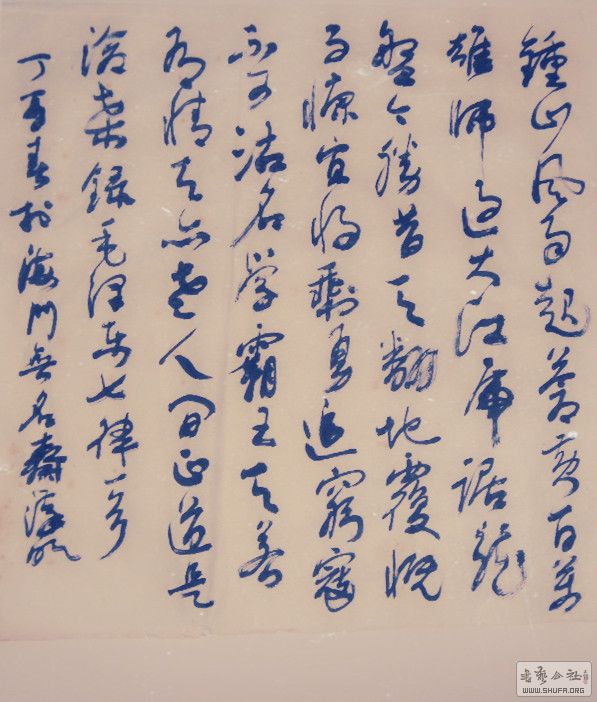 鍾山风雨起蒼黄百萬
雄师过大江虎踞龍
盤今勝昔天翻地覆慨
而慷宜将剩勇追窮寇
不可沽名学霸王天若
有情天亦老人间正道是
滄桑録毛泽东七律一首
丁酉春於海门無名齋
书艺公社
WWW.SHUFA.ORG